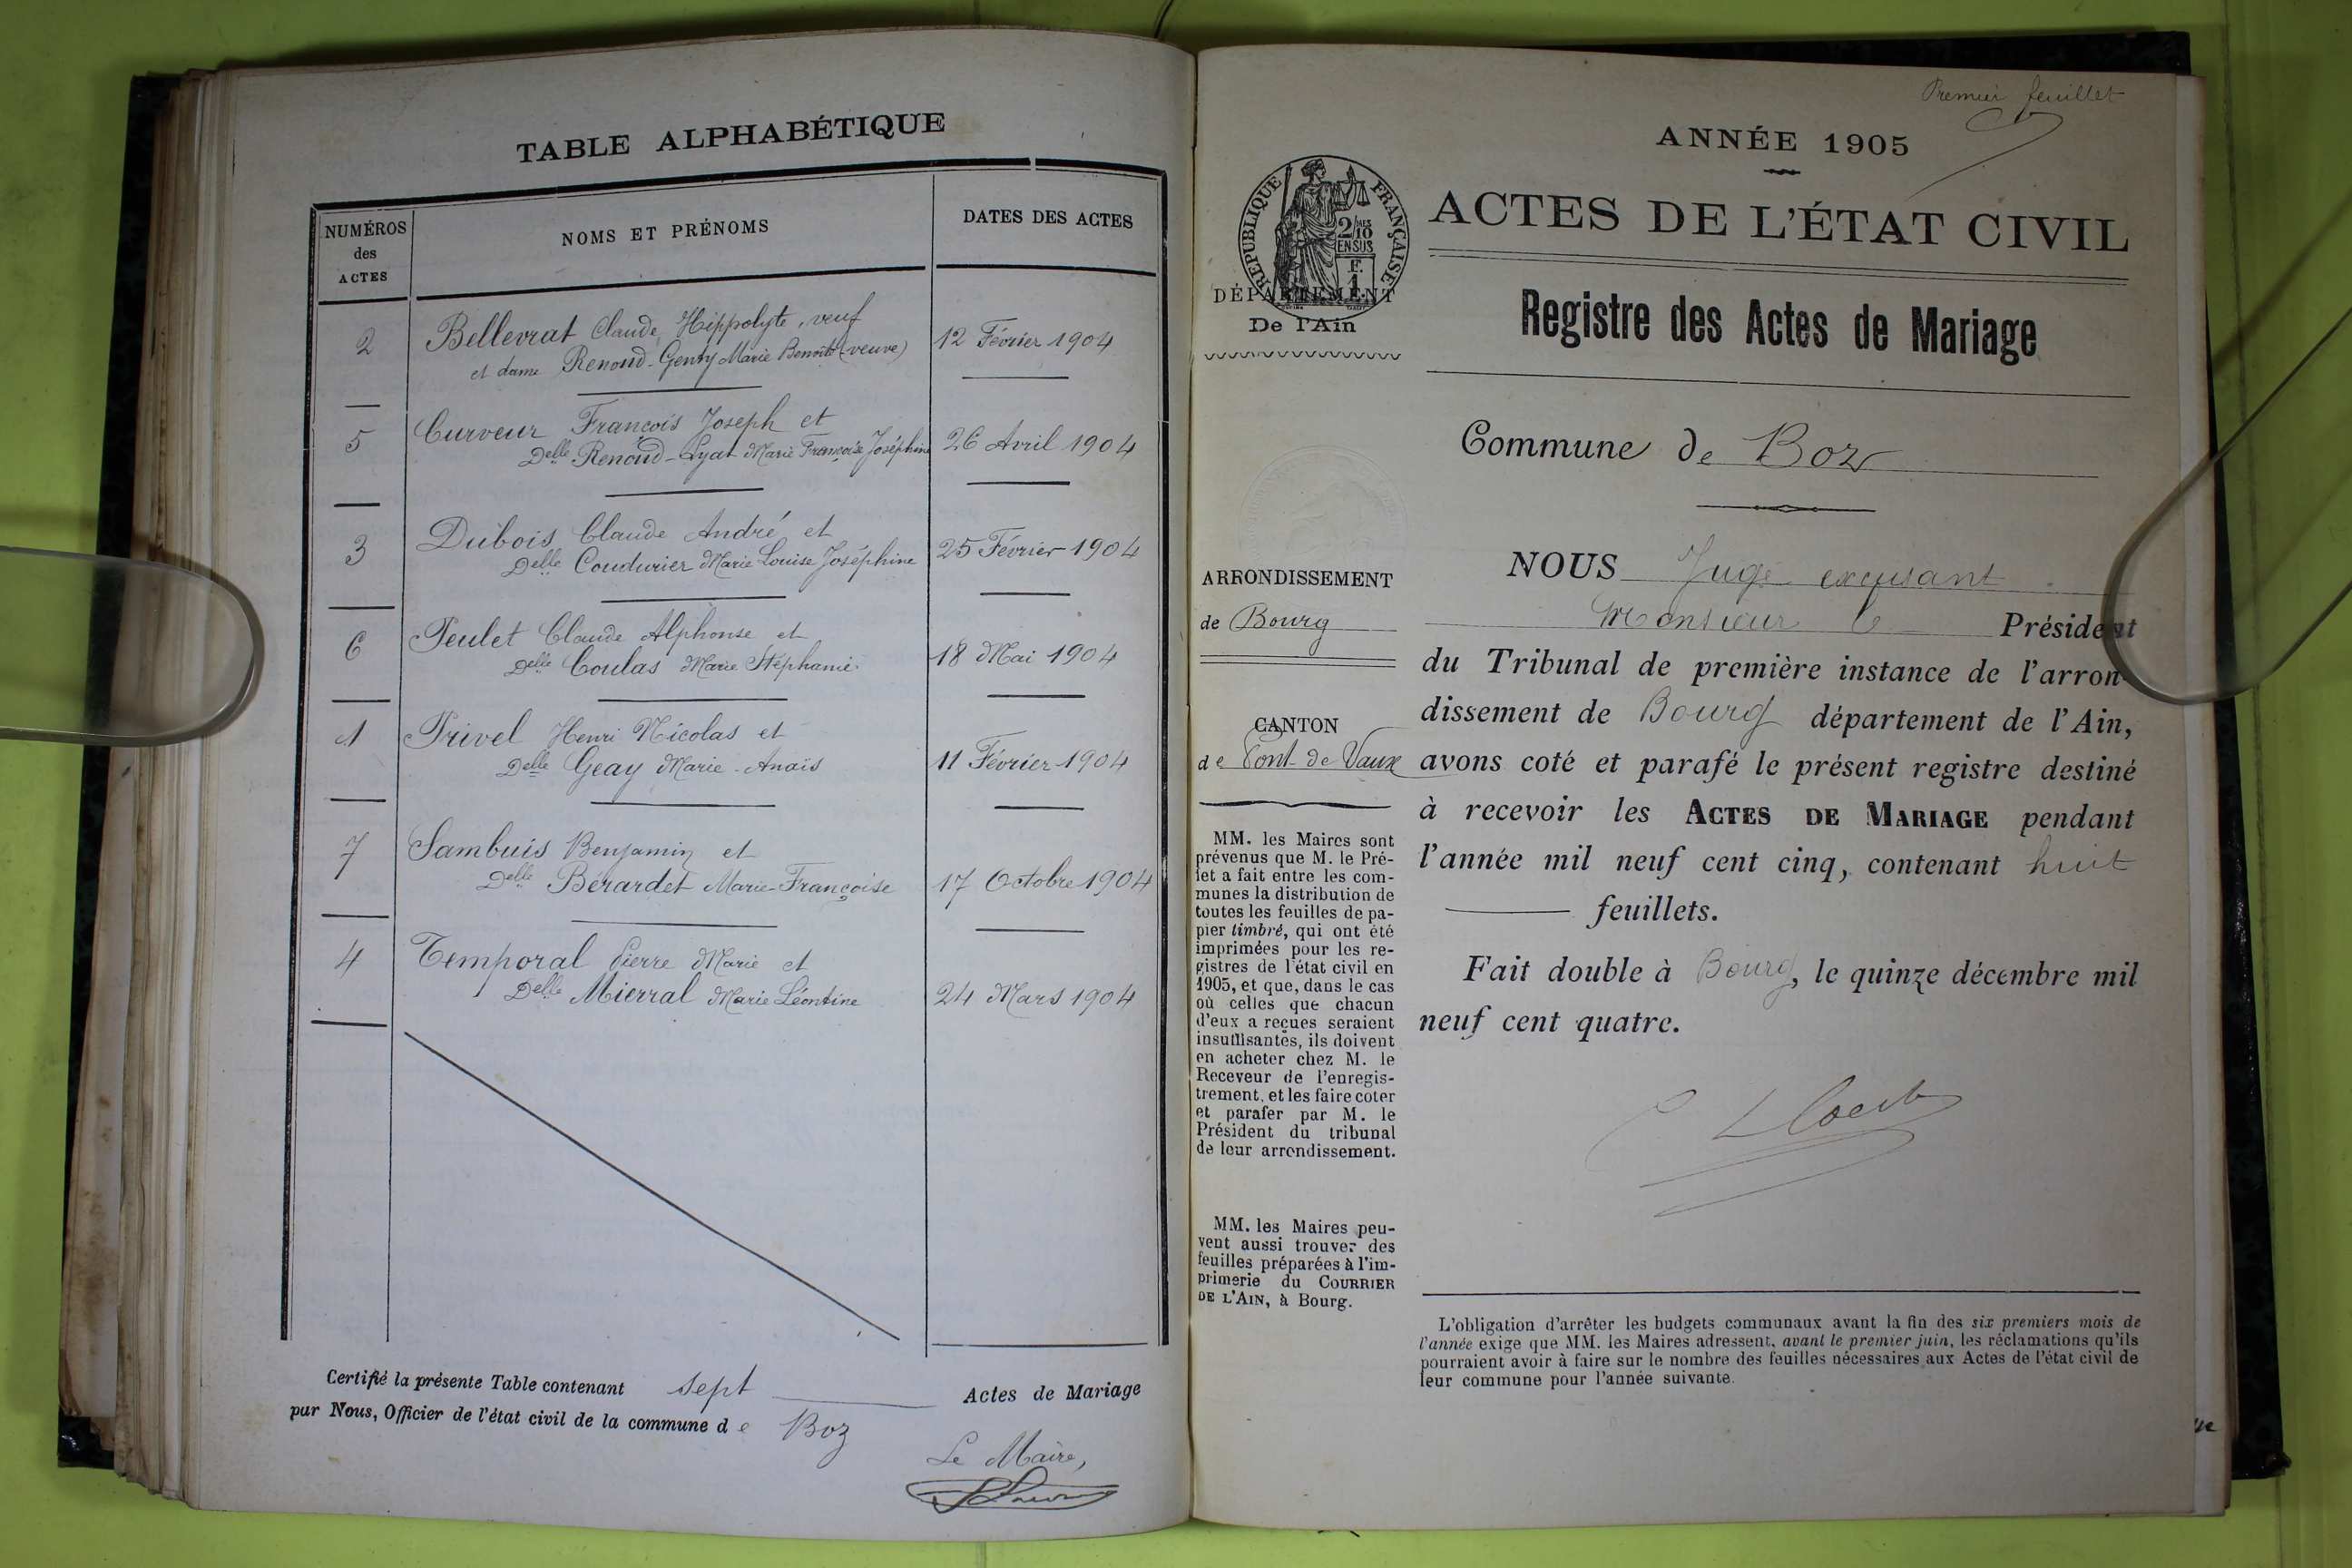 TABLE ALPHABÉTIQUE
NUMÉROS
des
ACTES
NOMS ET PRÉNOMS
DATES DES ACTES
2
Bellevrat Claude, Hippolyte, veuf
et dame Renoud-Genty Marie Benoîte (veuve)
12 Février 1904
5
Curveur François Joseph et
Delle Renoud-Lyat Marie Françoise Joséphine
26 Avril 1904
3
Dubois Claude André et
Delle Coudurier Marie Louise Joséphine
25 Février 1904
6
Peulet Claude Alphonse et
Delle Coulas Marie Stéphanie
18 Mai 1904
1
Privel Henri Nicolas et
Delle Geay Marie-Anaïs
11 Février 1904
7
Sambuis Benjamin et
Delle Bérardet Marie-Françoise
17 Octobre 1904
4
Temporal Pierre Marie et
Delle Mierral Marie Léontine
24 Mars 1904
Certifié la présente Table contenant sept Actes de Mariage
par Nous, Officier de l'état civil de la commune de Boz
Le Maire,
Premier feuillet
ANNÉE 1905
ACTES DE L'ÉTAT CIVIL
Registre des Actes de Mariage
RÉPUBLIQUE FRANÇAISE
2/10
EN SUS
F.
1
DÉPARTEMENT
De l'Ain
Commune de Boz
ARRONDISSEMENT
de Bourg
CANTON
de Pont de Vaux
MM. les Maires sont
prévenus que M. le Pré-
fet a fait entre les com-
munes la distribution de
toutes les feuilles de pa-
pier timbré, qui ont été
imprimées pour les re-
gistres de l'état civil en
1905, et que, dans le cas
où celles que chacun
d'eux a reçues seraient
insuffisantes, ils doivent
en acheter chez M. le
Receveur de l'enregis-
trement, et les faire coter
et parafer par M. le
Président du tribunal
de leur arrondissement.
MM. les Maires peu-
vent aussi trouver des
feuilles préparées à l'im-
primerie du COURRIER
DE L'AIN, à Bourg.
NOUS Juge excusant
Monsieur le Président
du Tribunal de première instance de l'arron-
dissement de Bourg département de l'Ain,
avons coté et parafé le présent registre destiné
à recevoir les ACTES DE MARIAGE pendant
l'année mil neuf cent cinq, contenant huit
feuillets.
Fait double à Bourg, le quinze décembre mil
neuf cent quatre.
L'obligation d'arrêter les budgets communaux avant la fin des six premiers mois de
l'année exige que MM. les Maires adressent, avant le premier juin, les réclamations qu'ils
pourraient avoir à faire sur le nombre des feuilles nécessaires aux Actes de l'état civil de
leur commune pour l'année suivante.